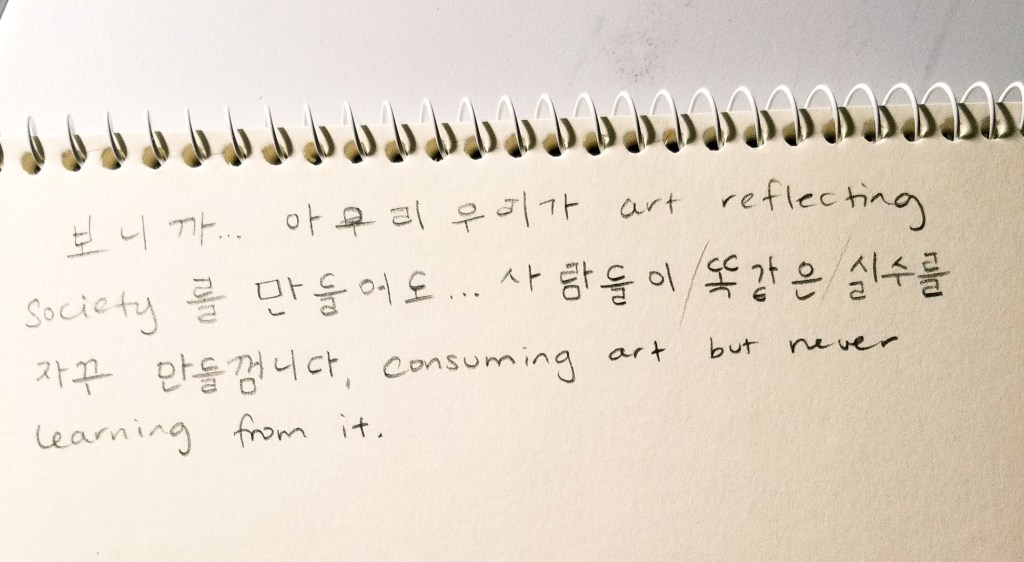 보니까... 아무리 우리가 art reflecting
society 를 만들어도... 사람들이/똑같은/실수를
자꾸 만들껌니다, consuming art but never
learning from it.